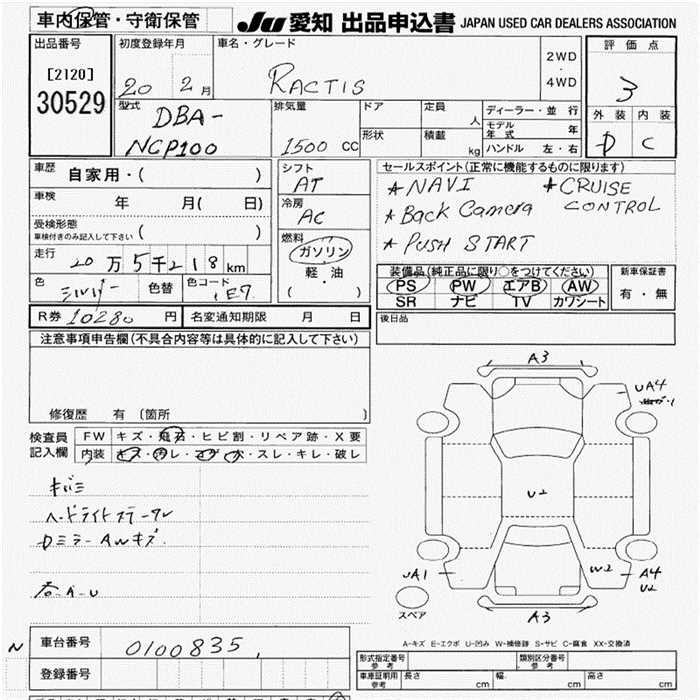 車内保管・守衛保管 JU 愛知 出品申込書 JAPAN USED CAR DEALERS ASSOCIATION
出品番号 初度登録年月 車名・グレード 評価点
[2120] 20 年 2 月 RACTIS 2WD ・ 4WD 3
30529
外装 内装
D C
型式 DBA- 排気量 ドア 定員 人 ディーラー・並行
NCP100 1500 cc 形状 積載 kg モデル年式 年
ハンドル 左・右
車歴 自家用・( ) シフト セールスポイント(正常に機能するものに限ります)
AT ★NAVI ★CRUISE CONTROL
車検 年 月( 日) 冷房 ★Back Camera
受検形態 AC ★PUSH START
車検付きのみ記入して下さい ( ) 燃料
走行 20万5千218km ガソリン 装備品(純正品に限り○をつけてください) 新車保証書
軽・油 PS PW エアB AW 有・無
色 シルバー 色替 色コード 1E7 ( ) SR ナビ TV カワシート
R券 10280 円 名変通知期限 月 日 後日品
注意事項申告欄(不具合内容等は具体的に記入して下さい)
修復歴 有(箇所 )
検査員 FW キズ・飛石・ヒビ割・リペア跡・X要
記入欄 内装 キズ・汚レ・コゲ・穴・スレ・キレ・破レ
キバミ
Dミラー AWキズ
A3
UA4
U2
W2
UA1
A4
U2
A3
スペア
A-キズ E-エクボ U-凹み W-補修跡 S-サビ C-腐食 XX-交換済
N 車台番号 0100835
登録番号
形式指定番号 参考 類別区分番号 参考
車庫証明用 参考 長さ cm 幅 cm 高さ cm